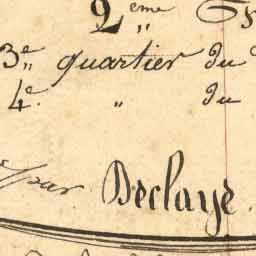 2 eme
3e quartier du
4e. " du
par Declaye.